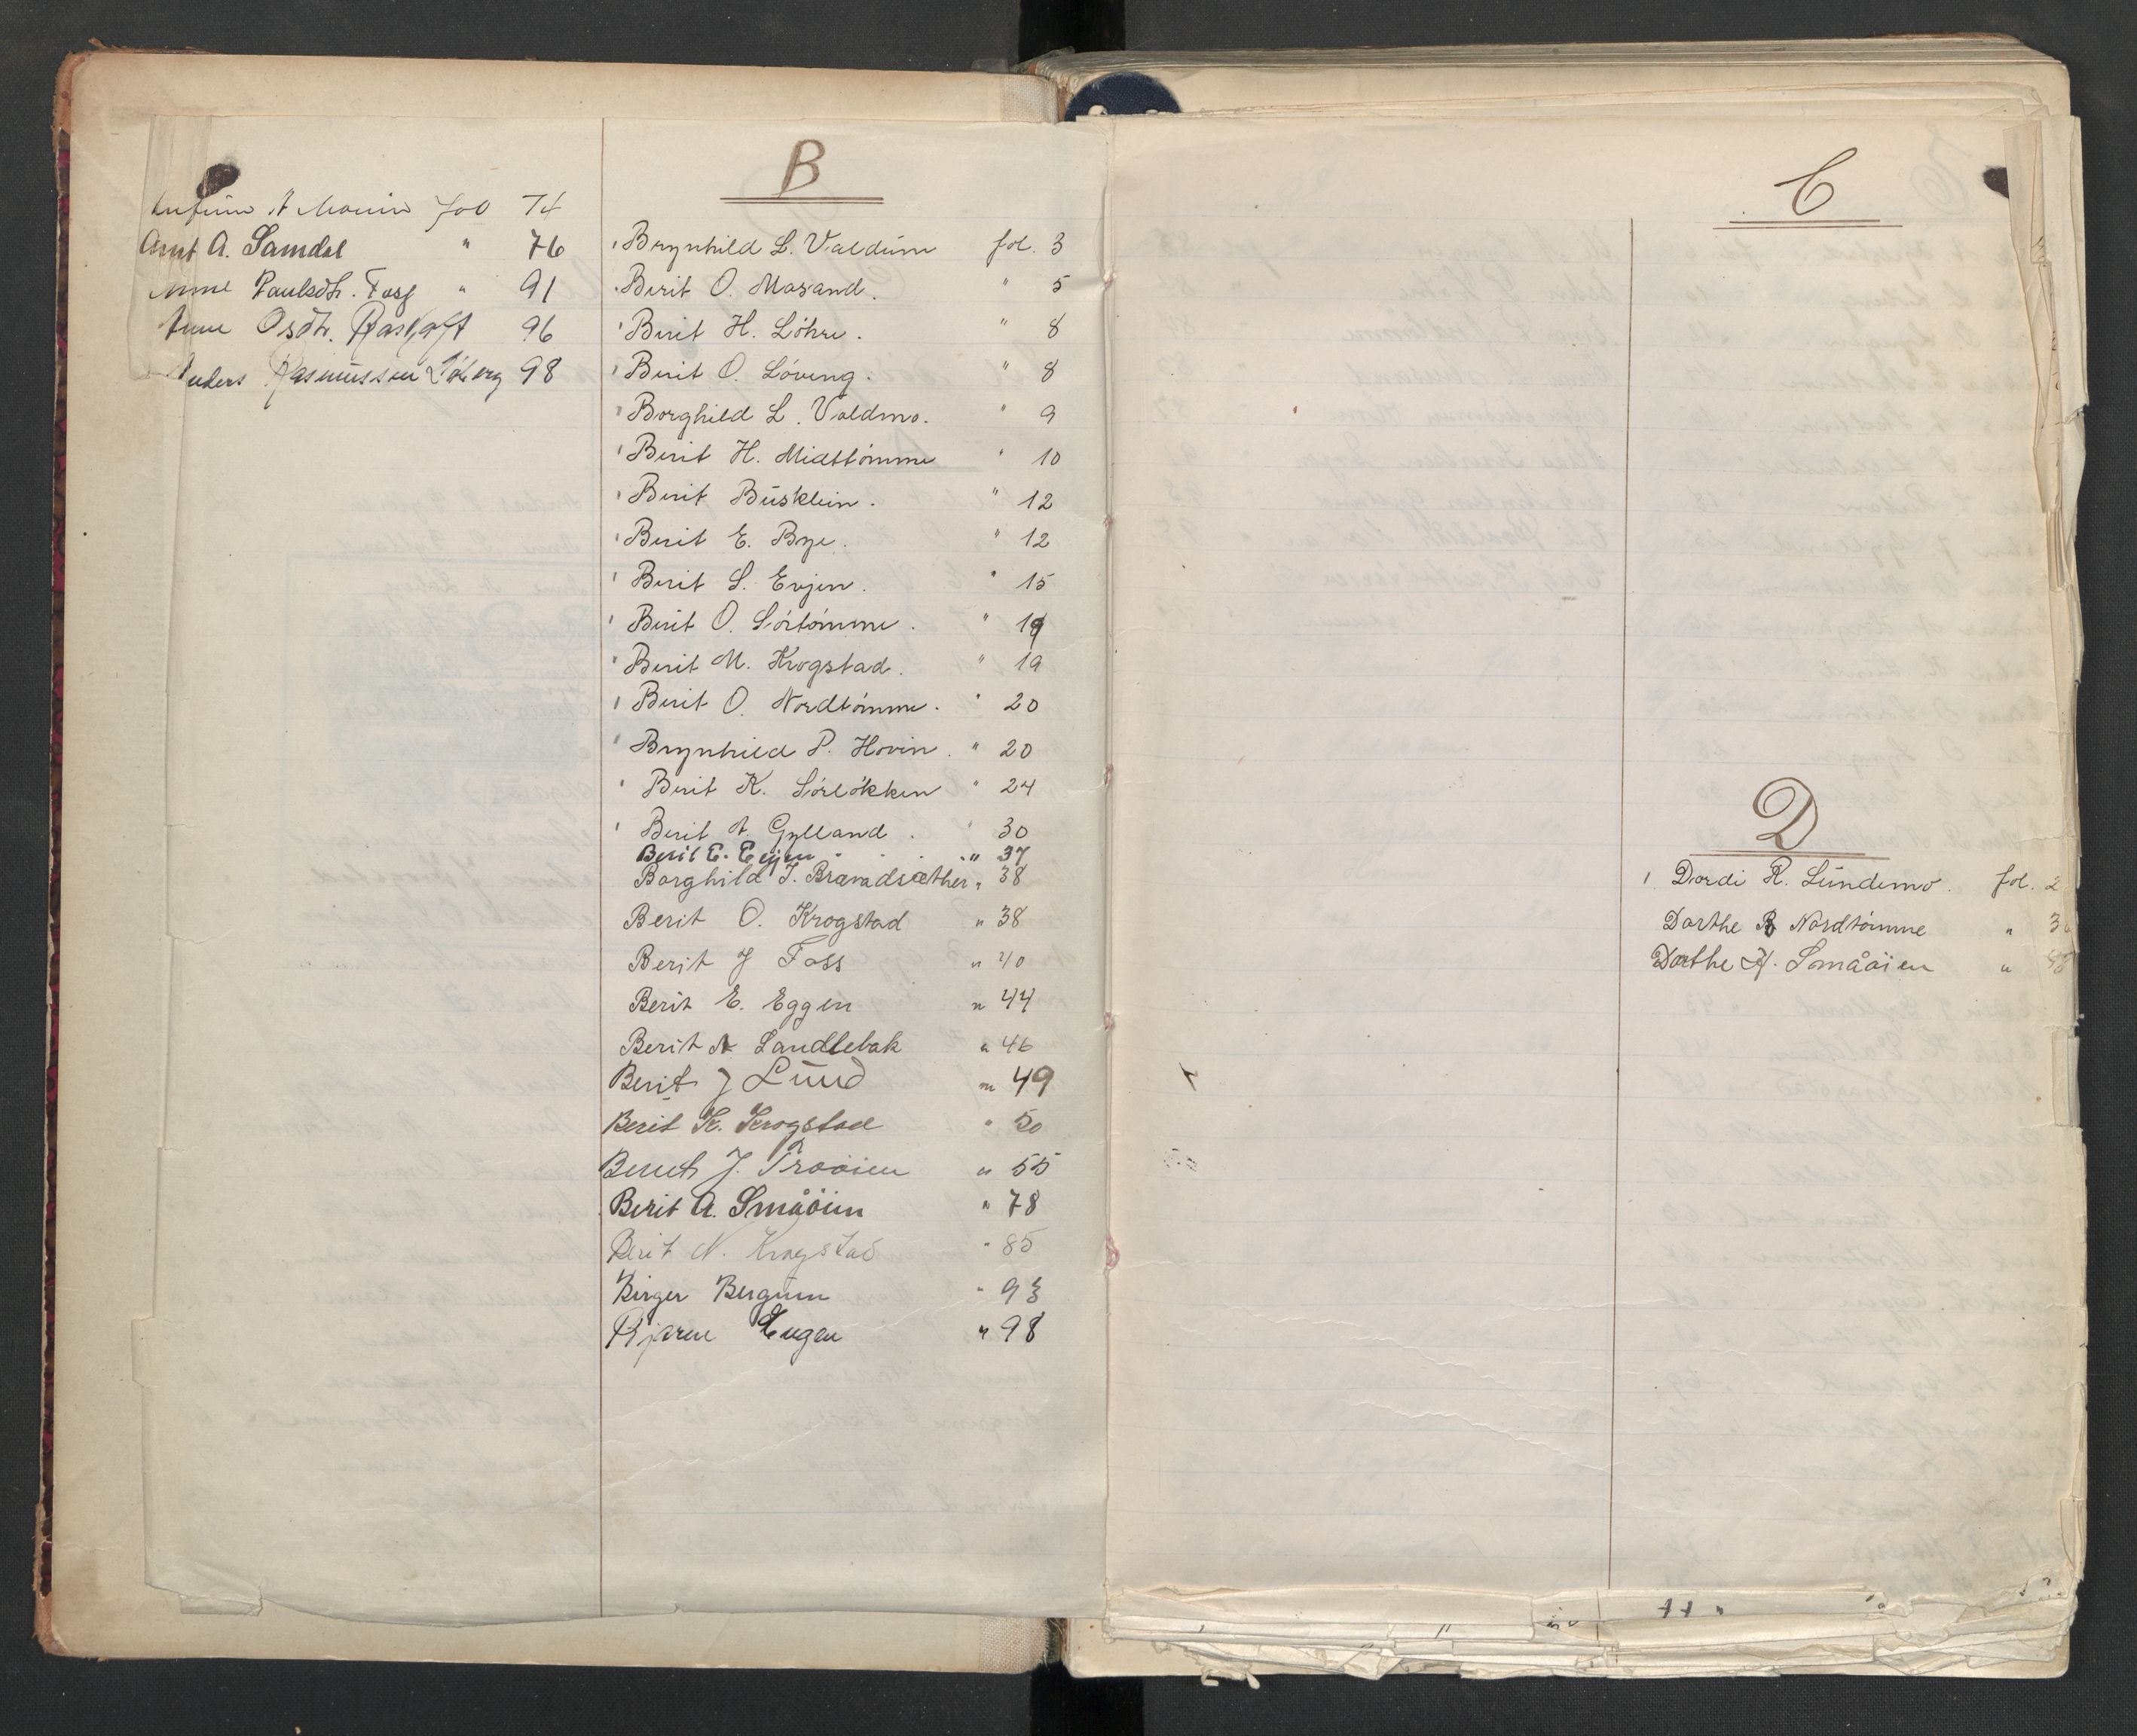 A Moum fol 74
Arnt A. Samdal " 76
Anne Paulsdtr. Foss " 91
Anne Osdtr. 96
Anders Rasmussen Löberg 98
B
Brynhild L. Valdum fol. 3
Berit O. Morand. " 5
Berit H. Löhre. " 8
Berit O. Löveng. " 8
Borghild L. Voldmo. " 9
Berit H. Midttömme " 10
Berit Busklein. " 12
Berit E. Bye. " 12
Berit L. Evjen. " 15
Berit O. Sörtömme. " 19
Berit M. Krogstad. " 19
Berit O. Nordtömme. " 20
Brynhild P. Hovin. " 20
Berit K. Sörlökken " 24
Berit A. Gylland. " 30
Berit E. Evjen " 37
Borghild J. Bravadsæther " 38
Berit O. Krogstad " 38
Berit J Foss " 40
Berit E. Eggen " 44
Berit A Landlebak " 46
Berit J Lund " 49
Berit K. Krogstad " 50
Berit J. Trøöien " 55
Berit A. Småöien " 78
Berit N. Krogstad " 85
Birger Bergum " 93
Bjarne Engen " 98
C
D
Dordi R. Lundemo. fol. 2
Dorthe R Nordtömme " 3
Dorthe H. Småöien " 48